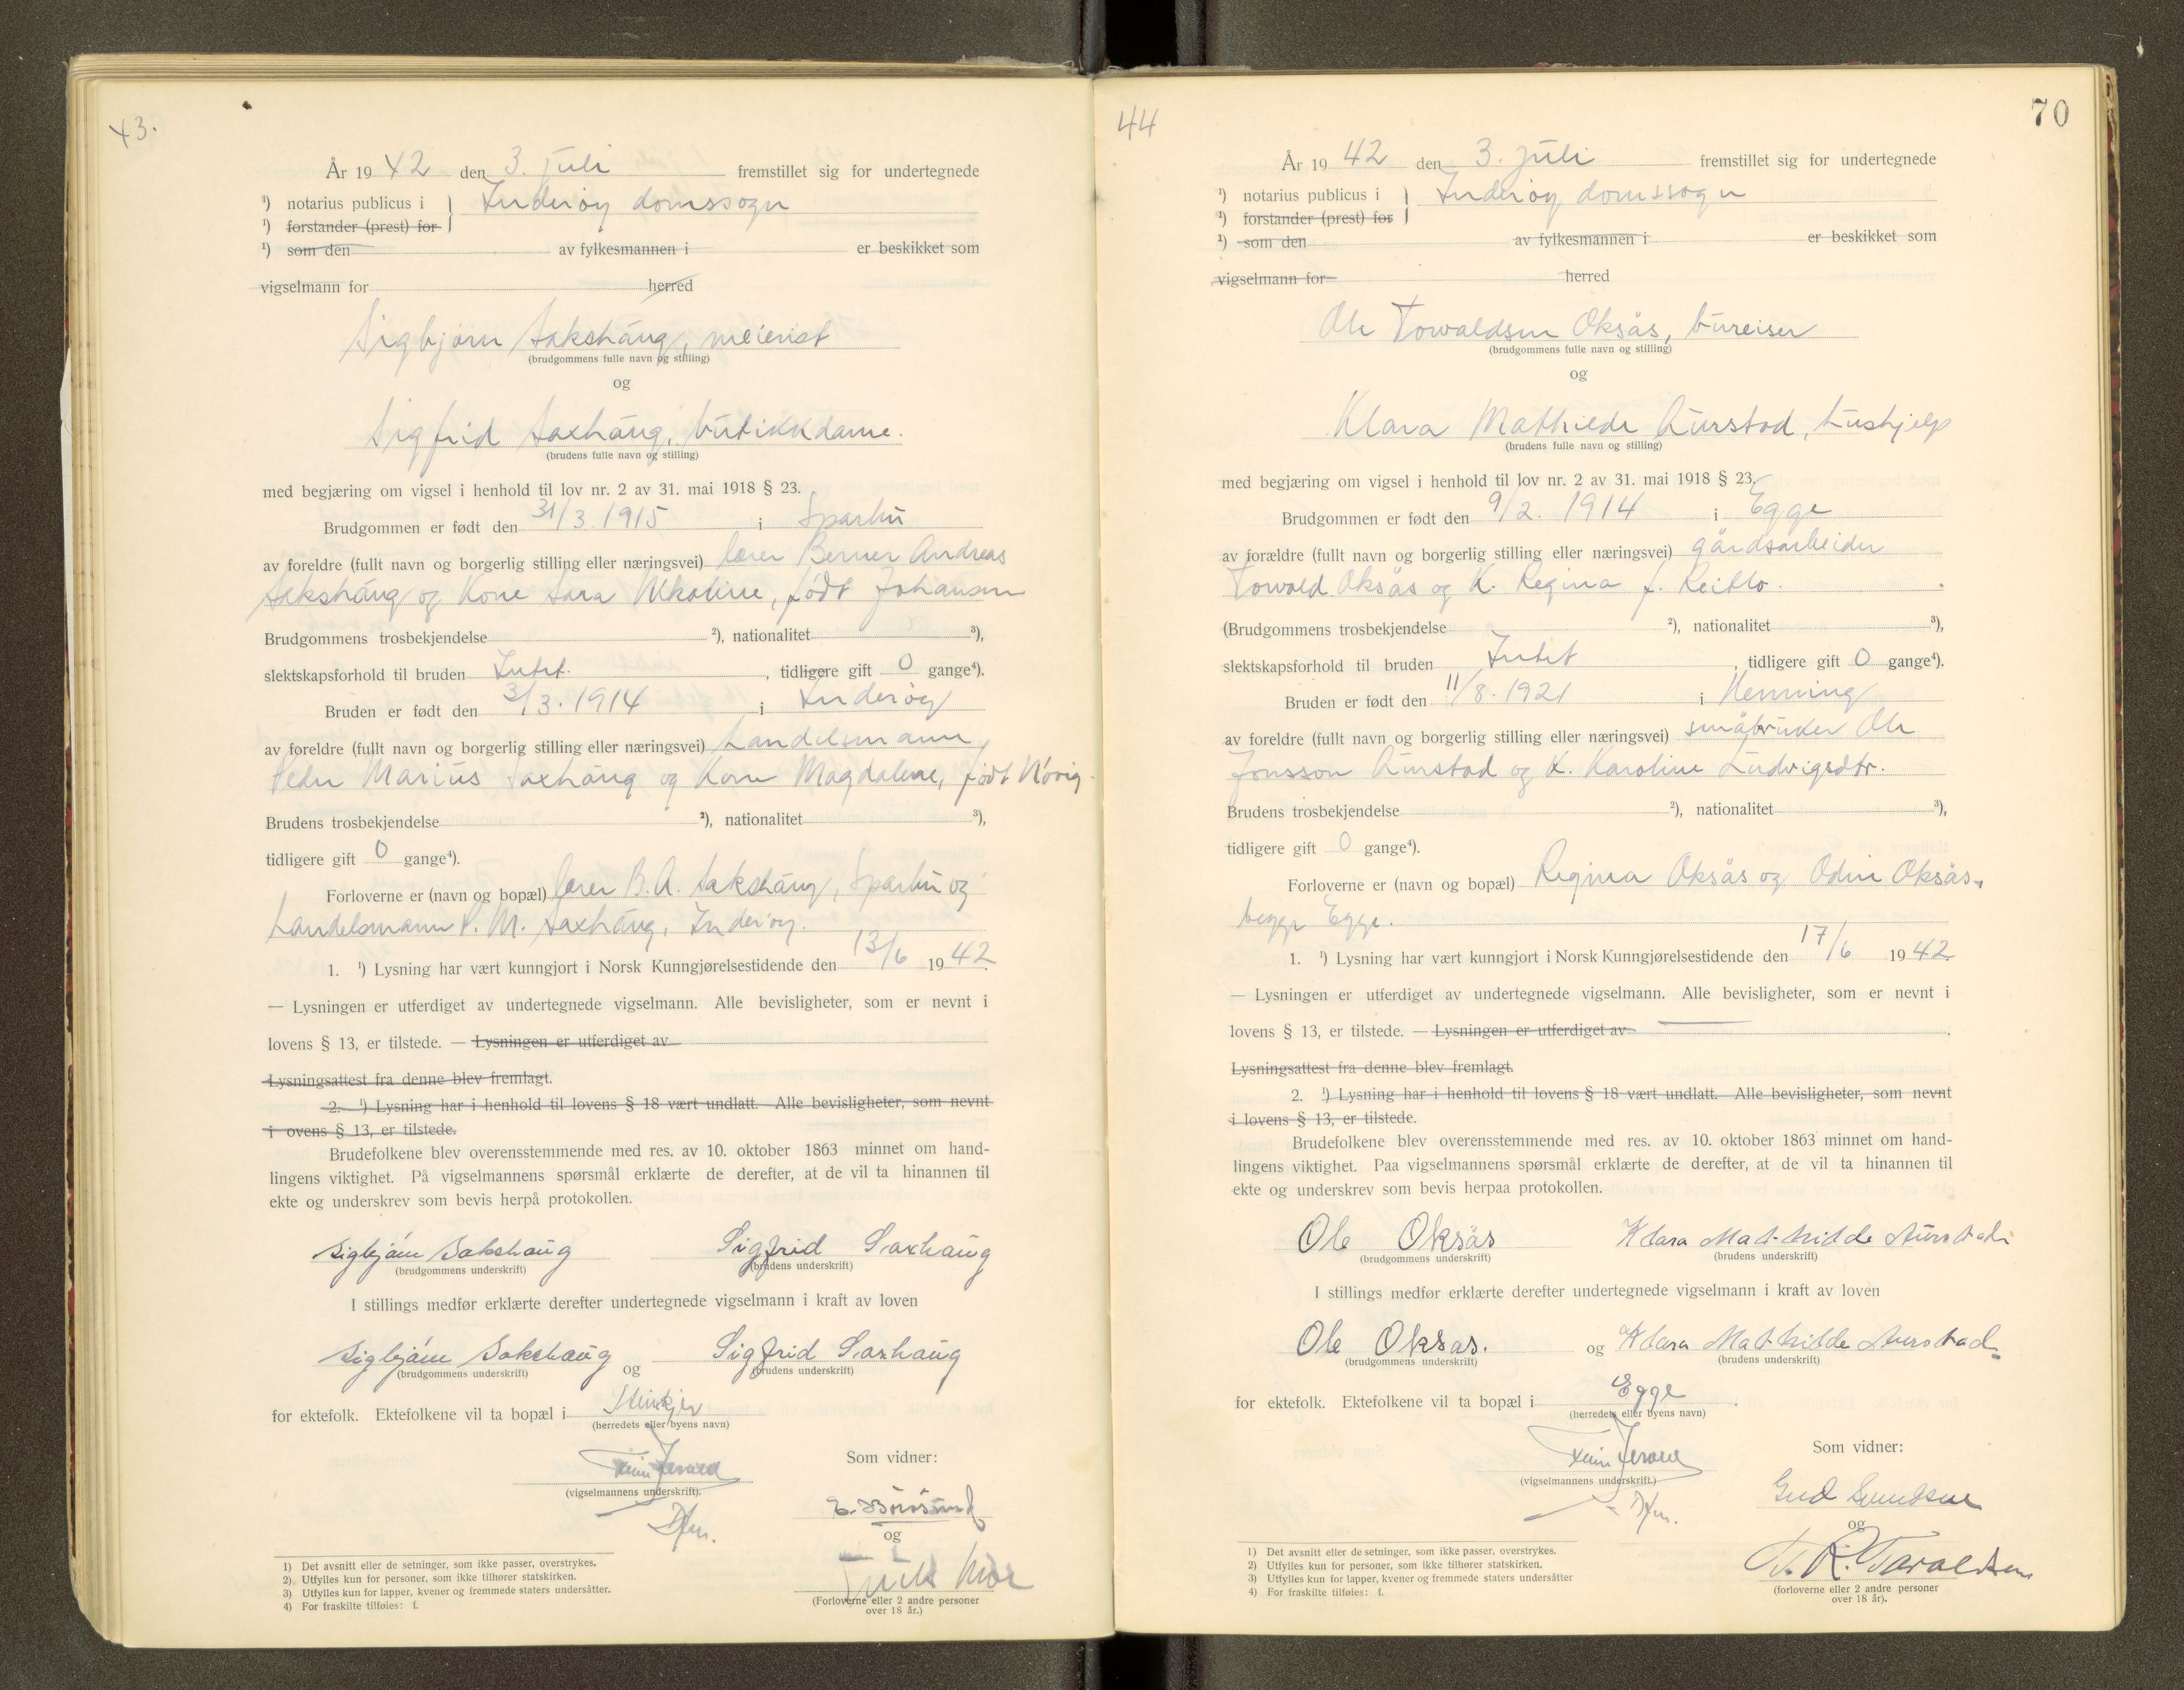 43.
År 1942 den 3. juli fremstillet sig for undertegnede
¹) notarius publicus i } Inderøy domssogn
¹) forstander (prest) for
¹) som den av fylkesmannen i er beskikket som
vigselmann for herred
Sigbjørn Sakshaug, meierist
(brudgommens fulle navn og stilling)
og
Sigfrid Saxhaug, butikkdame.
(brudens fulle navn og stilling)
med begjæring om vigsel i henhold til lov nr. 2 av 31. mai 1918 § 23.
Brudgommen er født den 31/3. 1915 i Sparbu
av foreldre (fullt navn og borgerlig stilling eller næringsvei) lærer Berner Andreas
Sakshaug og Kone Sara Nikoline, født Johansen
Brudgommens trosbekjendelse ²), nationalitet ³),
slektskapsforhold til bruden Intet. , tidligere gift 0 gange⁴).
Bruden er født den 3/3. 1914 i Inderøy
av foreldre (fullt navn og borgerlig stilling eller næringsvei) handelsmann
Peder Marius Saxhaug og Kone Magdalene, født
Brudens trosbekjendelse ²), nationalitet ³),
tidligere gift 0 gange⁴).
Forloverne er (navn og bopæl) lærer B. A. Sakshaug, Sparbu og
handelsmann P. M. Saxhaug, Inderøy.
1. ¹) Lysning har vært kunngjort i Norsk Kunngjørelsestidende den 13/6 1942.
— Lysningen er utferdiget av undertegnede vigselmann. Alle bevisligheter, som er nevnt i
lovens § 13, er tilstede. — Lysningen er utferdiget av
Lysningsattest fra denne blev fremlagt.
2. ¹) Lysning har i henhold til lovens § 18 vært undlatt. Alle bevisligheter, som nevnt
i ovens § 13, er tilstede.
Brudefolkene blev overensstemmende med res. av 10. oktober 1863 minnet om hand-
lingens viktighet. På vigselmannens spørsmål erklærte de derefter, at de vil ta hinannen til
ekte og underskrev som bevis herpå protokollen.
Sigbjørn Sakshaug Sigfrid Saxhaug
(brudgommens underskrift) (brudens underskrift)
I stillings medfør erklærte derefter undertegnede vigselmann i kraft av loven
Sigbjørn Sakshaug og Sigfrid Saxhaug
(brudgommens underskrift) (brudens underskrift)
for ektefolk. Ektefolkene vil ta bopæl i Steinkjer
(herredets eller byens navn)
Som vidner:
(vigselmannens underskrift).
og
(Forloverne eller 2 andre personer
over 18 år.)
1) Det avsnitt eller de setninger, som ikke passer, overstrykes.
2) Utfylles kun for personer, som ikke tilhører statskirken.
3) Utfylles kun for lapper, kvener og fremmede staters undersåtter.
4) For fraskilte tilføies: f.
44
70
År 1942 den 3. juli fremstillet sig for undertegnede
¹) notarius publicus i } Inderøy domssogn
¹) forstander (prest) for
¹) som den av fylkesmannen i er beskikket som
vigselmann for herred
Ole Torvaldsen Oksås, bureiser
(brudgommens fulle navn og stilling)
og
Klara Mathilde Aurstad, hushjelp
(brudens fulle navn og stilling)
med begjæring om vigsel i henhold til lov nr. 2 av 31. mai 1918 § 23.
Brudgommen er født den 9/2. 1914 i Egge
av forældre (fullt navn og borgerlig stilling eller næringsvei) gårdsarbeider
Torvald Oksås og K. Regina f.
(Brudgommens trosbekjendelse ²), nationalitet ³),
slektskapsforhold til bruden Intet , tidligere gift 0 gange⁴).
Bruden er født den 11/8. 1921 i Henning
av foreldre (fullt navn og borgerlig stilling eller næringsvei) småbruker Ole
Jonsson Aurstad og K. Karoline Ludvigsdtr.
Brudens trosbekjendelse ²), nationalitet ³),
tidligere gift 0 gange⁴).
Forloverne er (navn og bopæl) Regina Oksås og Odin Oksås,
begge Egge.
1. ¹) Lysning har vært kunngjort i Norsk Kunngjørelsestidende den 17/6 1942.
— Lysningen er utferdiget av undertegnede vigselmann. Alle bevisligheter, som er nevnt i
lovens § 13, er tilstede. — Lysningen er utferdiget av .
Lysningsattest fra denne blev fremlagt.
2. ¹) Lysning har i henhold til lovens § 18 vært undlatt. Alle bevisligheter, som nevnt
i lovens § 13, er tilstede.
Brudefolkene blev overensstemmende med res. av 10. oktober 1863 minnet om hand-
lingens viktighet. Paa vigselmannens spørsmål erklærte de derefter, at de vil ta hinannen til
ekte og underskrev som bevis herpaa protokollen.
Ole Oksås Klara Mathilde Aurstad
(brudgommens underskrift) (brudens underskrift)
I stillings medfør erklærte derefter undertegnede vigselmann i kraft av loven
Ole Oksas. og Klara Mathilde Aurstad
(brudgommens underskrift) (brudens underskrift)
for ektefolk. Ektefolkene vil ta bopæl i Egge .
(herredets eller byens navn)
Som vidner:
(vigselmannens underskrift.)
og
(forloverne eller 2 andre personer
over 18 år).
1) Det avsnitt eller de setninger, som ikke passer, overstrykes.
2) Utfylles kun for personer, som ikke tilhører statskirken.
3) Utfylles kun for lapper, kvener og fremmede staters undersåtter
4) For fraskilte tilføies: f.